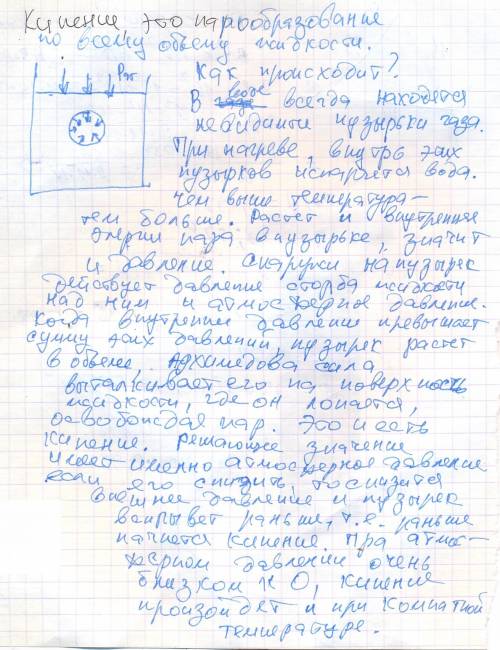 Кипение, это парообразование
по всему объему жидкости.
Pат
Как происходит?
В воде всегда находятся
невидимые пузырьки газа.
При нагреве, внутрь этих
пузырков испаряется вода.
Чем выше температура-
тем больше. Растет и внутренняя
энергия газа в пузырьке, значит
и давление. Снаружи на пузырек
действует давление столба жидкости
над ним и атмосферное давление.
Когда внутреннее давление превышает
сумму этих давлений, пузырек растет
в объеме, Архимедова сила
выталкивает его на поверхность
жидкости, где он лопается,
освобождая пар. Это и есть
кипение. Решающее значение
имеет именно атмосферное давление
если его снизить, то снизится
внешнее давление и пузырек
всплывет раньше, т.е. раньше
начнется кипение. При атмос-
ферном давлении очень
близком к 0, кипение
произойдет и при комнатной
температуре.